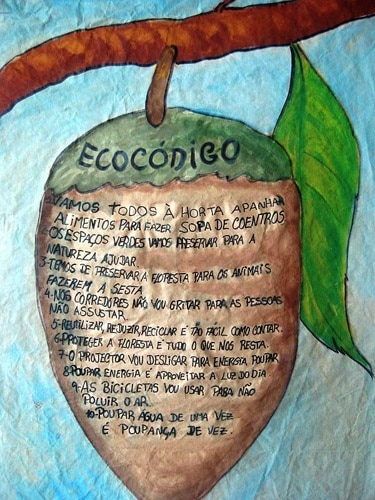 ECOCÓDIGO
1-VAMOS TODOS À HORTA APANHAR
ALIMENTOS PARA FAZER SOPA DE COENTROS.
2-OS ESPAÇOS VERDES VAMOS PRESERVAR PARA A
NATUREZA AJUDAR.
3-TEMOS DE PRESERVAR A FLORESTA PARA OS ANIMAIS
FAZEREM A SESTA.
4-NOS CORREDORES NÃO VOU GRITAR PARA AS PESSOAS
NÃO ASSUSTAR.
5-REUTILIZAR, REDUZIR, RECICLAR É TÃO FACIL COMO CONTAR.
6-PROTEGER A FLORESTA É TUDO O QUE NOS RESTA.
7-O PROJECTOR VOU DESLIGAR PARA ENERGIA POUPAR.
8-POUPAR ENERGIA É APROVEITAR A LUZ DO DIA
9-AS BICICLETAS VOU USAR PARA NÃO
POLUIR O AR.
10-POUPAR ÁGUA DE UMA VEZ
É POUPANÇA DE VEZ.